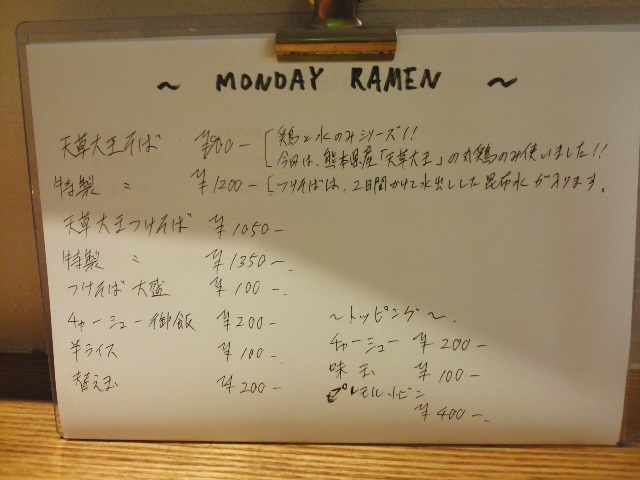 ~ MONDAY RAMEN ~
天草大王そば ¥900-
[鶏と水のみシリーズ!!
今日は、熊本県産「天草大王」の丸鶏のみ使いました!!
特製 〃 ¥1200-
[つけそばは、2日間かけて水出しした昆布水が入ります。
天草大王つけそば ¥1050-
特製 〃 ¥1350-.
つけそば大盛 ¥100-
チャーシュー御飯 ¥200-
半ライス ¥100-
替え玉 ¥200-
~トッピング~.
チャーシュー ¥200-
味玉 ¥100-
プレモル小ビン
¥400-.